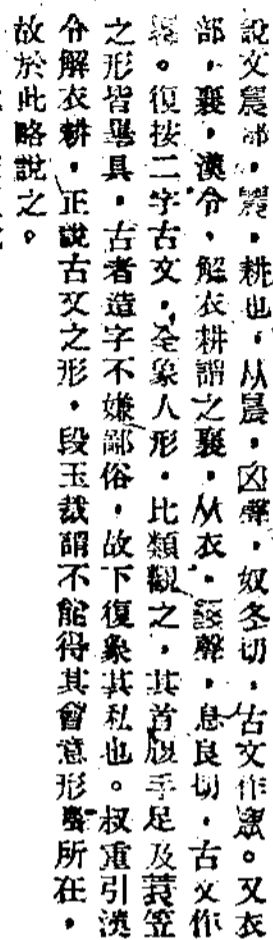 說文䢅部，䢅，耕也，从䢅，囟聲，奴冬切，古文作。又衣
部，襄，漢令，解衣耕謂之襄，从衣，聲，息良切，古文作
。復按二字古文，全象人形，比類觀之，其首腹手足及蓑笠
之形皆畢具，古者造字不嫌鄙俗，故下復象其私也。叔重引漢
令解衣耕，正說古文之形，段玉裁謂不能得其會意形聲所在，
故於此略說之。